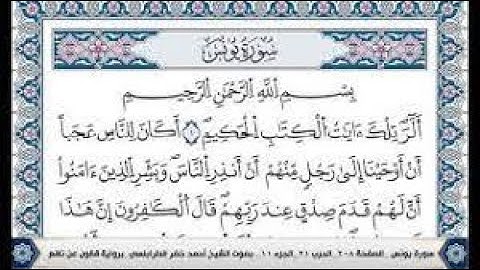 سُورَةُ يُونُسَ
بِسْمِ اِللَّهِ اِلرَّحْمَٰنِ اِلرَّحِيمِ
أَلَٓر تِلْكَ ءَايَٰتُ اُلْكِتَٰبِ اِلْحَكِيمِ ١ أَكَانَ لِلنَّاسِ عَجَباً
أَنْ أَوْحَيْنَا إِلَىٰ رَجُلٍ مِّنْهُمْ أَنْ أَنذِرِ اِلنَّاسَ وَبَشِّرِ اِلذِينَ ءَامَنُوا
أَنَّ لَهُمْ قَدَمَ صِدْقٍ عِندَ رَبِّهِمْ قَالَ اَلْكَٰفِرُونَ إِنَّ هَٰذَا
سورة يونس الصفحة ٢٠٨ الحزب ٢١ الجزء ١١ بصوت الشيخ أحمد خضر الطرابلسي برواية قالون عن نافع